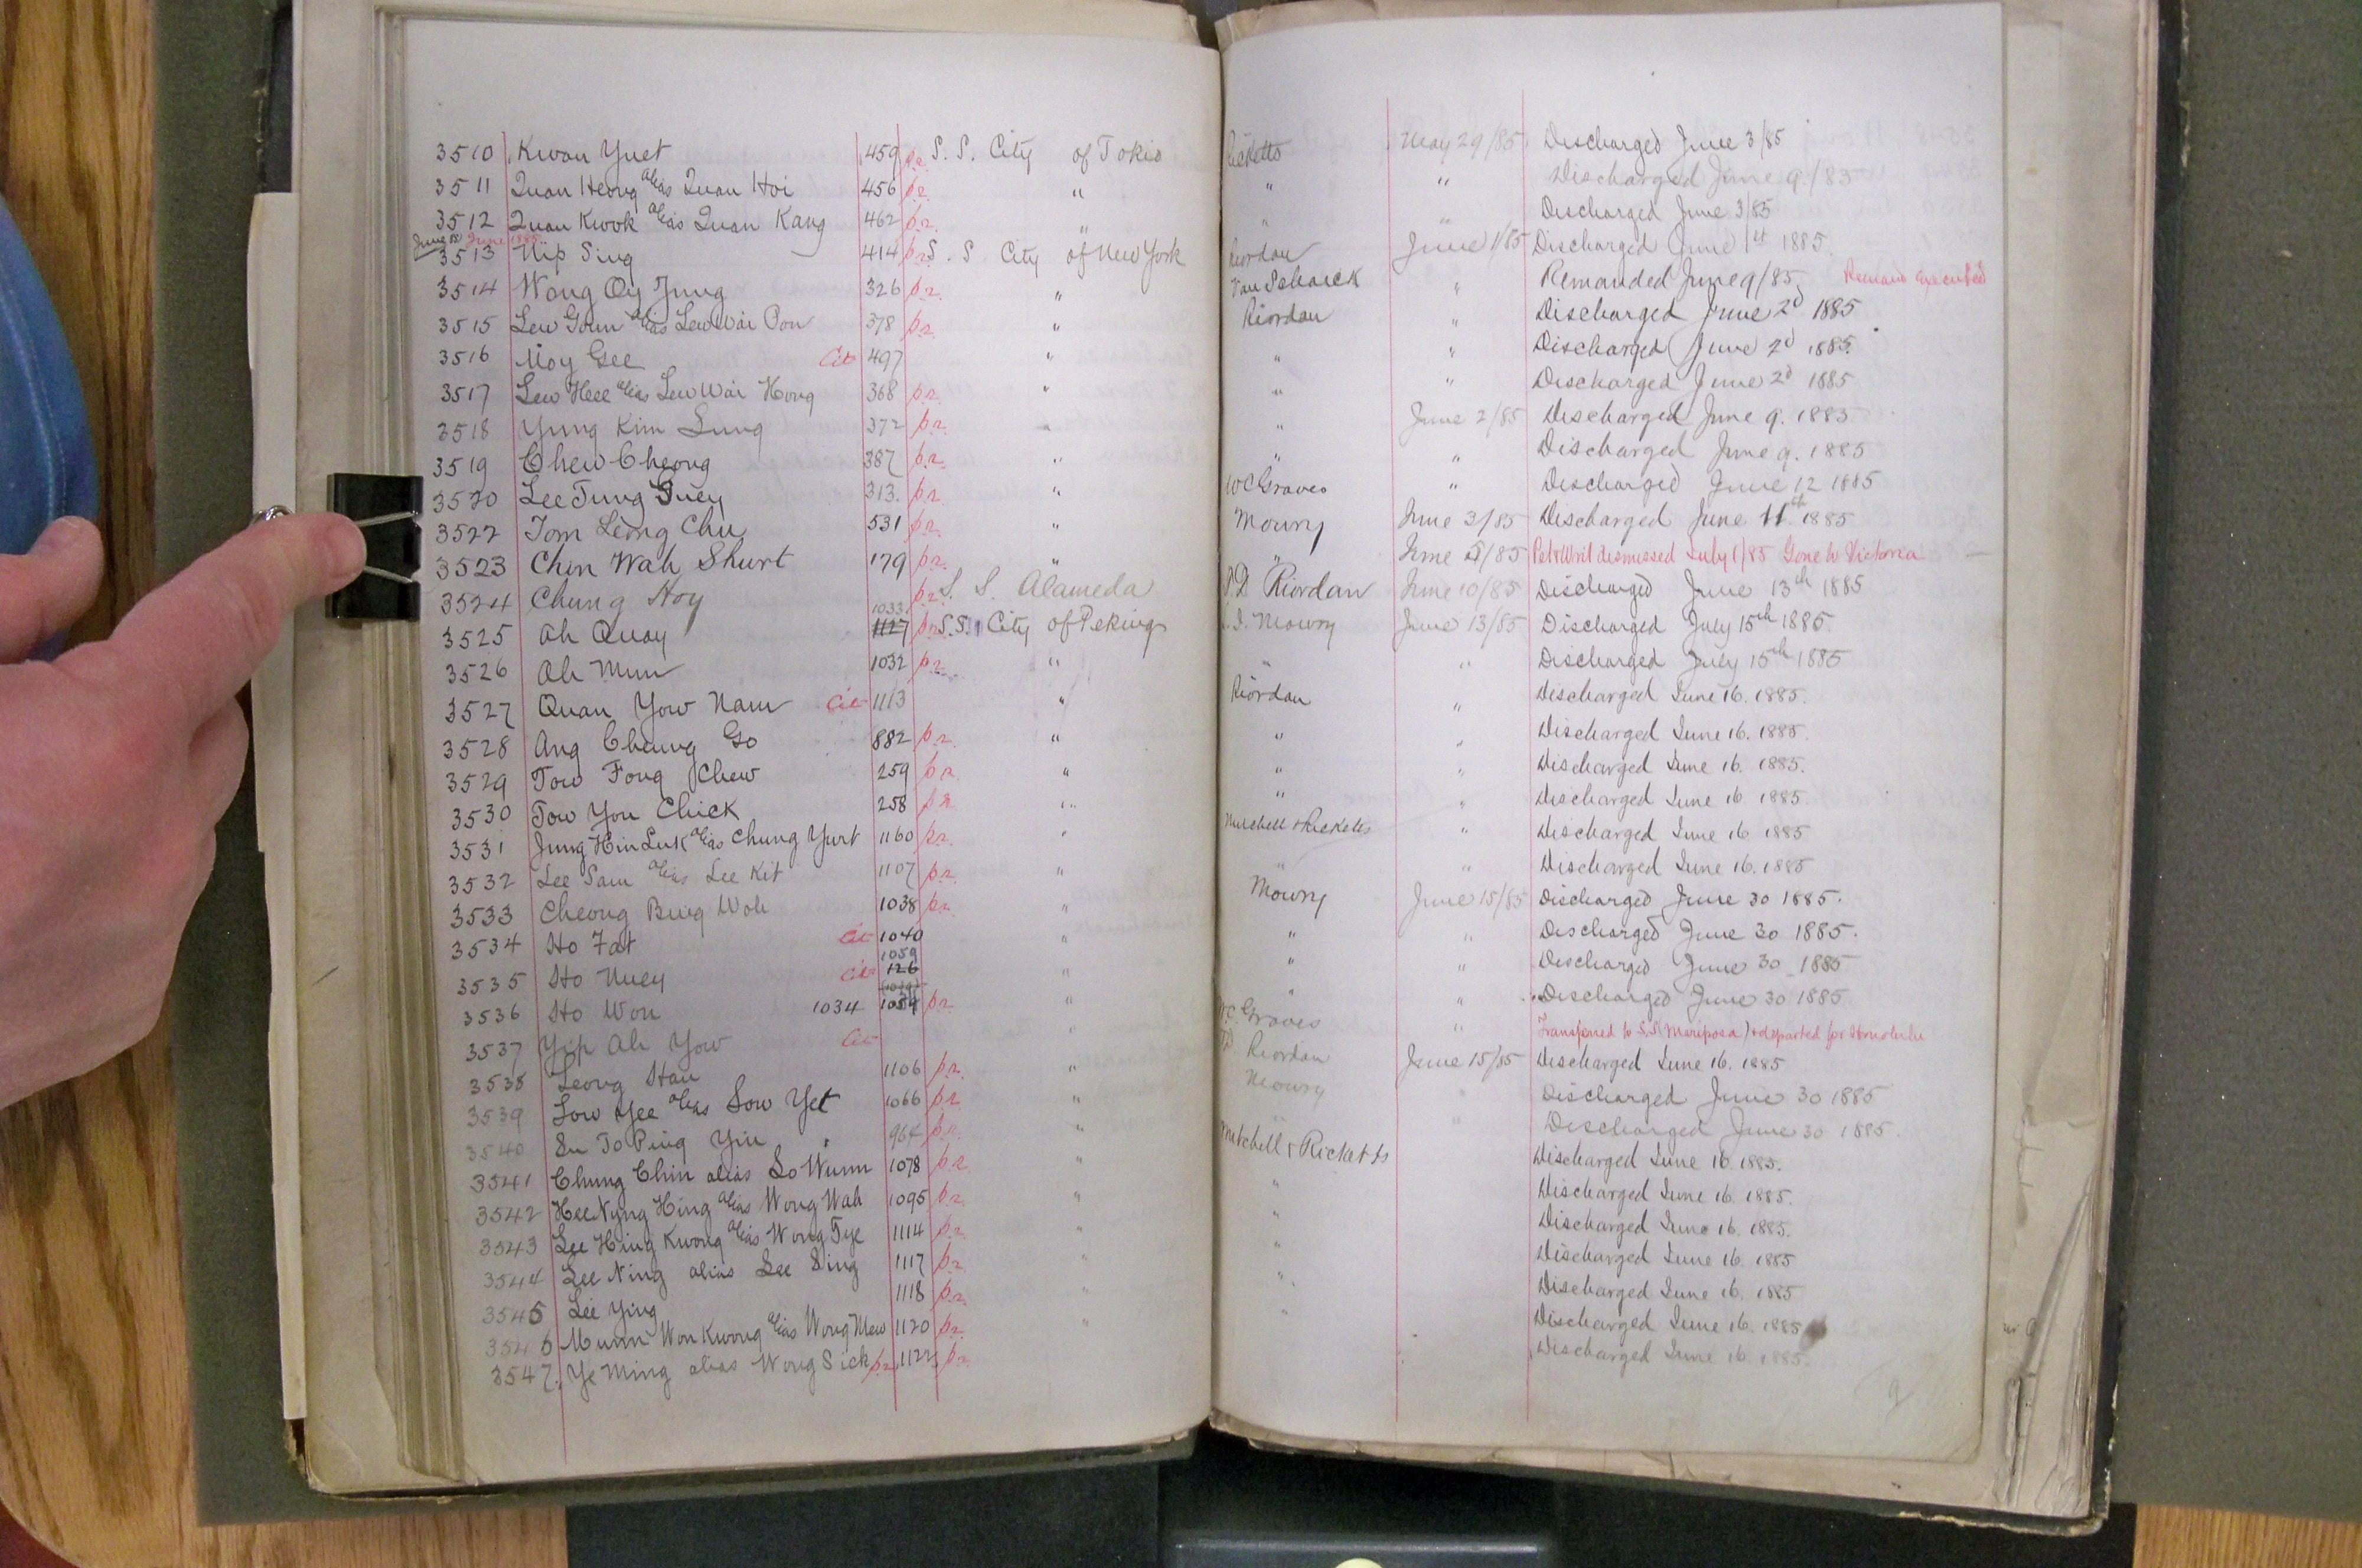 3510 Kwan Yuet 459 pr. S. S. City of Tokio Ricketts May 29/85 Discharged June 3/85
3511 Quan Heong alias Quan Hoi 456 pr. " " " Discharged June 9/85
3512 Quan Kwok alias Quan Kang 462 pr. " " " Discharged June 3/85
June 1885
3513 Nip Sing 414 pr. S. S. City of New York Riordan June 1/85 Discharged June 1st 1885.
3514 Wong Oy Jung 326 pr. " Van Schaick " Remanded June 9/85 Remand executed
3515 Lew Goun alias Lew Wai Pon 378 pr. " Riordan " Discharged June 2d 1885
3516 Moy Gee Cit 497 " " " Discharged June 2d 1885.
3517 Lew Hee alias Lew Wai Hong 368 pr. " " " Discharged June 2d 1885
3518 Yung Kim Sung 372 pr. " " June 2/85 Discharged June 9. 1885
3519 Chew Cheong 387 pr. " " " Discharged June 9. 1885
3520 Lee Tung Guey 313. pr. " W C Graves " Discharged June 12 1885
3522 Tom Leong Chu 531 pr. " Mowry June 3/85 Discharged June 11th 1885
3523 Chin Wah Shurt 179 pr. " " June /85 Pet & Writ dismissed July 1/85 Gone to Victoria
3524 Chung Hoy pr. S. S. Alameda Riordan June 10/85 Discharged June 13th 1885
3525 Ah Quay 1033 1127 pr. S.S. City of Peking Mowry June 13/85 Discharged July 15th 1885.
3526 Ah Mun 1032 pr. " " " Discharged July 15th 1885
3527 Quan Yow Nam Cit 1113 " Riordan " Discharged June 16. 1885.
3528 Ang Chung Go 882 pr. " " " Discharged June 16. 1885.
3529 Tow Fong Chew 259 pr. " " " Discharged June 16. 1885.
3530 Tow You Chick 258 pr. " " " Discharged June 16. 1885.
3531 Jung Hin Luk alias Chung Yurt 1160 pr. " Mitchell & Ricketts " Discharged June 16 1885
3532 Lee Sam alias Lee Kit 1107 pr. " " " Discharged June 16. 1885
3533 Cheong Bing Woh 1038 pr. " Mowry June 15/85 Discharged June 30 1885.
3534 Ho Fat Cit 1040 " " " Discharged June 30 1885.
3535 Ho Nuey Cit 1059 126 " " " Discharged June 30 1885
3536 Ho Won 1034 1059 pr. " " " Discharged June 30 1885
3537 Yip Ah Yow Cit " Graves " Transferred to S.S. (Mariposa) & departed for Honolulu
3538 Leong Han 1106 pr. " Riordan June 15/85 Discharged June 16. 1885
3539 Low Yee alias Sow Yet 1066 pr. " Mowry " Discharged June 30 1885
3540 Su To Ping Yin 964 pr. " " " Discharged June 30 1885.
3541 Chung Chin alias So Wunn 1078 pr. " Mitchell & Ricketts Discharged June 16. 1885.
3542 Hee Nyng Hing alias Wong Wah 1095 pr. " " Discharged June 16. 1885.
3543 Lee Hing Kwong alias Wong Tye 1114 pr. " " Discharged June 16. 1885.
3544 Lee Ning alias See Sing 1117 pr. " " Discharged June 16. 1885
3545 Lee Ying 1118 pr. " " Discharged June 16. 1885
3546 Munn Won Kwong alias Wong Mew 1120 pr. " " Discharged June 16. 1885
3547. Ye Ming alias Wong Sick pr. 1122 pr. Discharged June 16 1885.